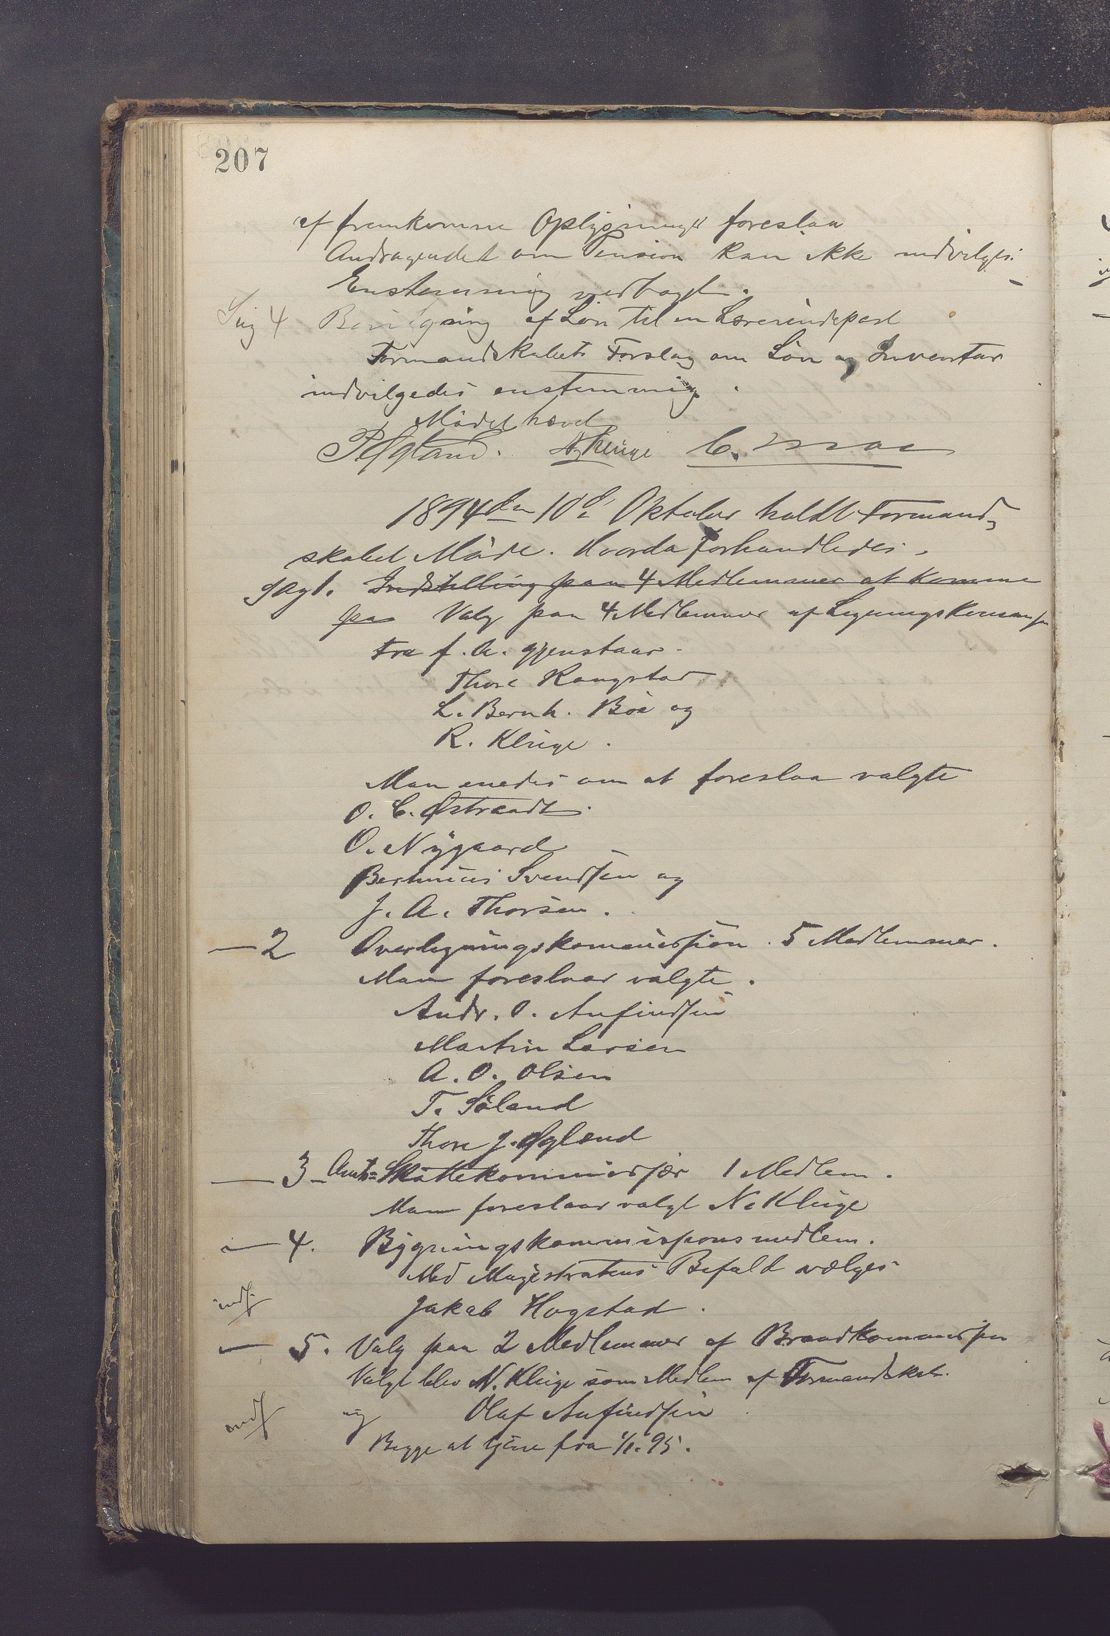 207
af fremkomne Oplysninger foreslaa
Andragendet om Pension kan ikke indvilges.
Enstemmig vedtaget.
Sag 4 Bevilgning af Løn til en Lærerindepost
Formandskabets Forslag om Løn og Inventar
indvilgedes enstemmig.
Mødet hævet
N Kluge
1894 den 10de Oktober holdt Formand-
skabet Møde. Hvorda forhandledes.
Sag 1. Indstilling paa 4 Medlemmer at komme
paa Valg paa 4 Medlemmer af Ligningskommisj
Fra f. A. gjenstaar.
Thore Rangstad
L. Bernh. Bøe og
R. Kluge.
Man enedes om at foreslaa valgte
O. C. Østraadt.
O. Nygaard
Berhnius Svendsen og
J. A. Thorsen.
— 2 Overligningskommission. 5 Medlemmer.
Man foreslaar valgte.
Andr. O. Anfindsen
Martin Larsen
A. O. Olsen
T. Søland
Thore J. Øgland
— 3 – Amts-Skattekommissær 1 Medlem.
Man foreslaar valgt N. Kluge
— 4. Bygningskommissionsmedlem.
Med Magistratens Bifald vælges
Jakob Hogstad.
indf
— 5. Valg paa 2 Medlemmer af Brandkommissjon
Valgt blev N. Kluge som Medlem af Formandskab.
og Olaf Anfindsen
indf
Begge at tjene fra 1/1. 95.